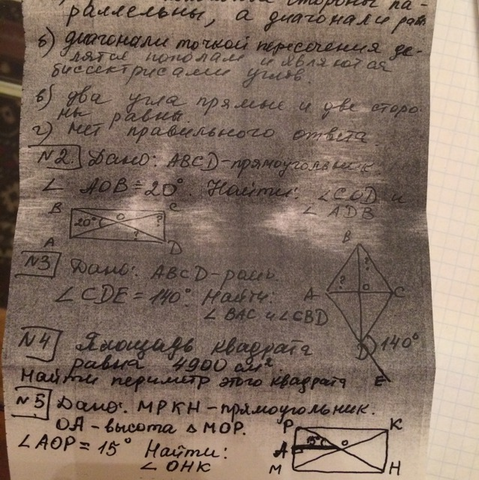 стороны па-
раллельны, а диагонали рав
б) диагонали точкой пересечения де-
лятся пополам и являются
биссектрисами углов.
в) два угла прямые и две сторо-
ны равны.
г) нет правильного ответа
№2. Дано: ABCD-прямоугольник
∠ AOB = 20°. Найти: ∠COD и
∠ ADB
B C
20° O
A D
№3 Дано: ABCD-ромб.
∠ CDE = 140° Найти:
∠ BAC и ∠CBD
B
?
A ? C
D 140°
E
№4 Площадь квадрата
равна 4900 см²
Найти периметр этого квадрата
№5 Дано: MPKH-прямоугольник.
OA-высота ∆ MOP.
∠AOP = 15° Найти:
∠ OHK
P K
A 15° O
M H